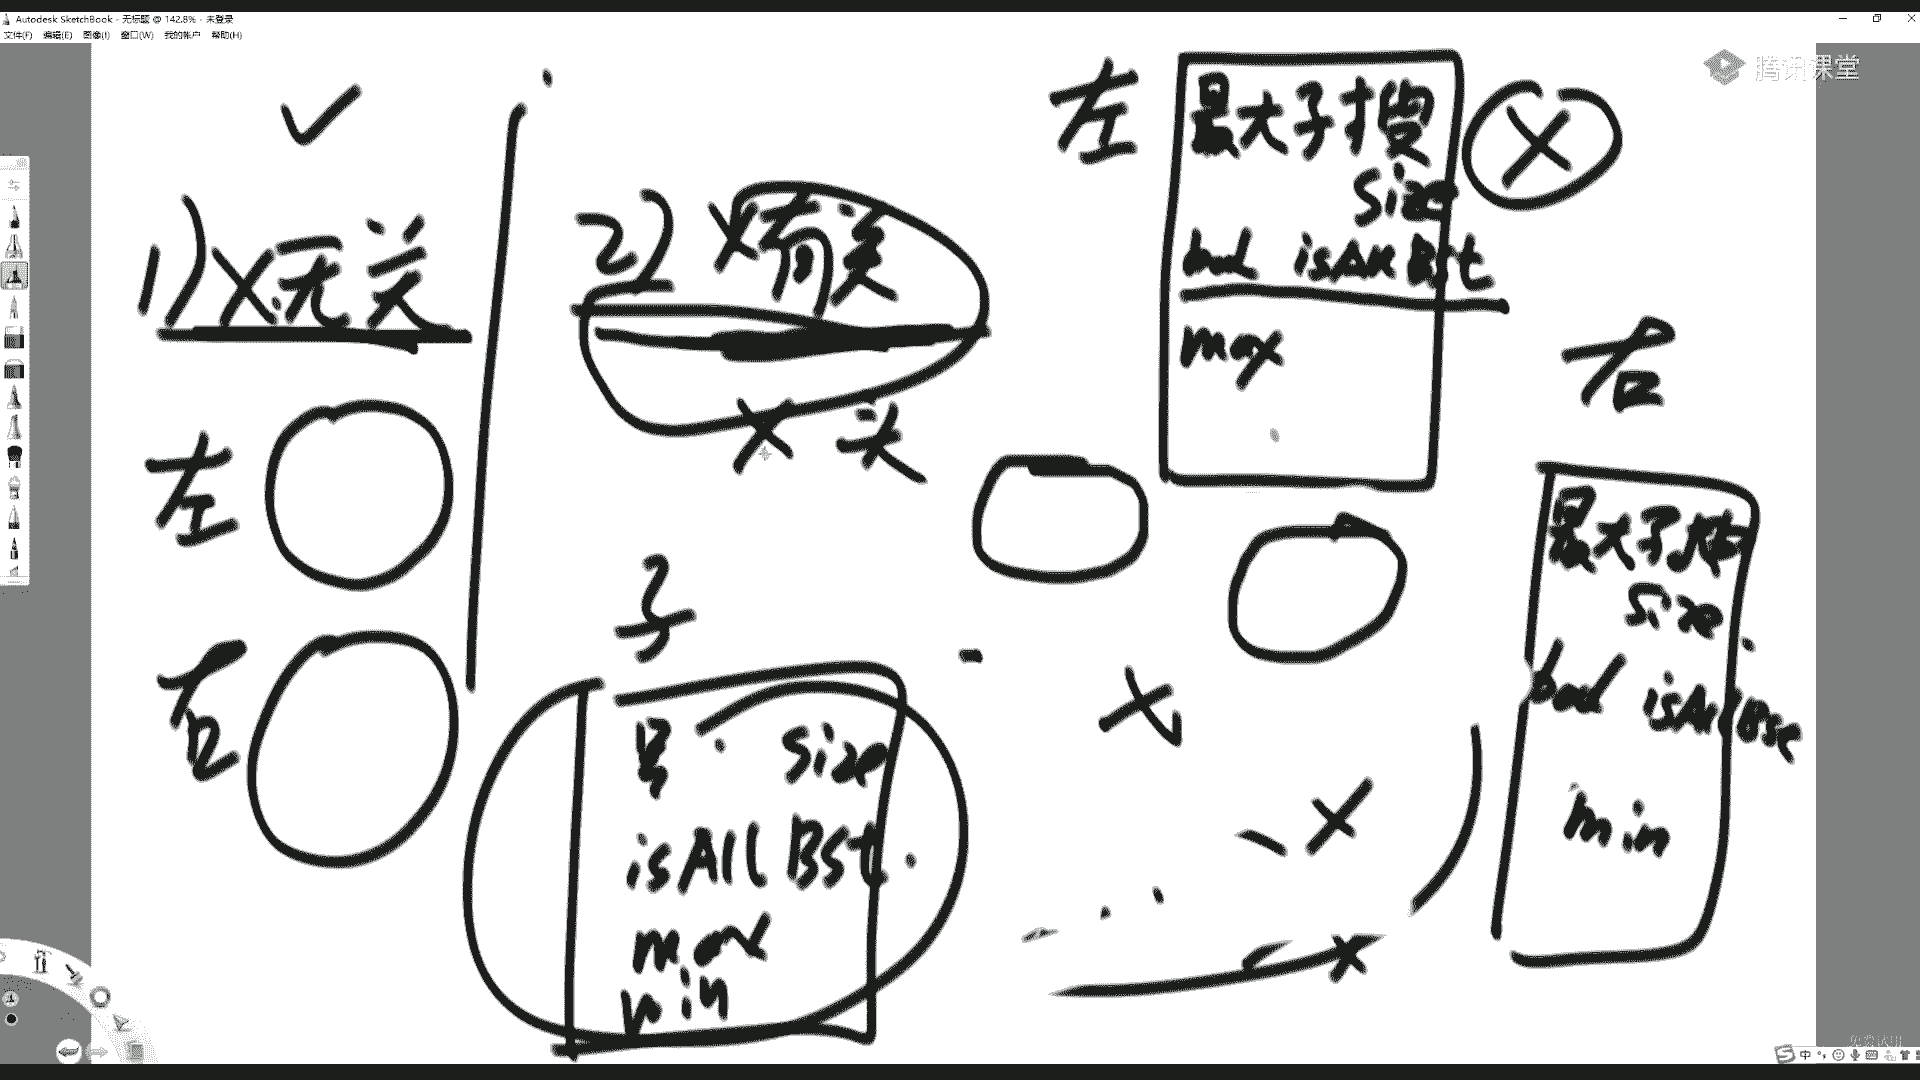 Autodesk SketchBook - 无标题 @ 142.8% - 未登录
文件(F) 编辑(E) 图像(I) 窗口(W) 我的帐户 帮助(H)
腾讯课堂
1) X无关
左
右
2) X有关
X 头
左
最大子搜
size
bool isAllBst
max
右
最大子搜
size
bool isAllBst
min
子
size
isAll BSt
max
min
X
X
X
免费试用
中